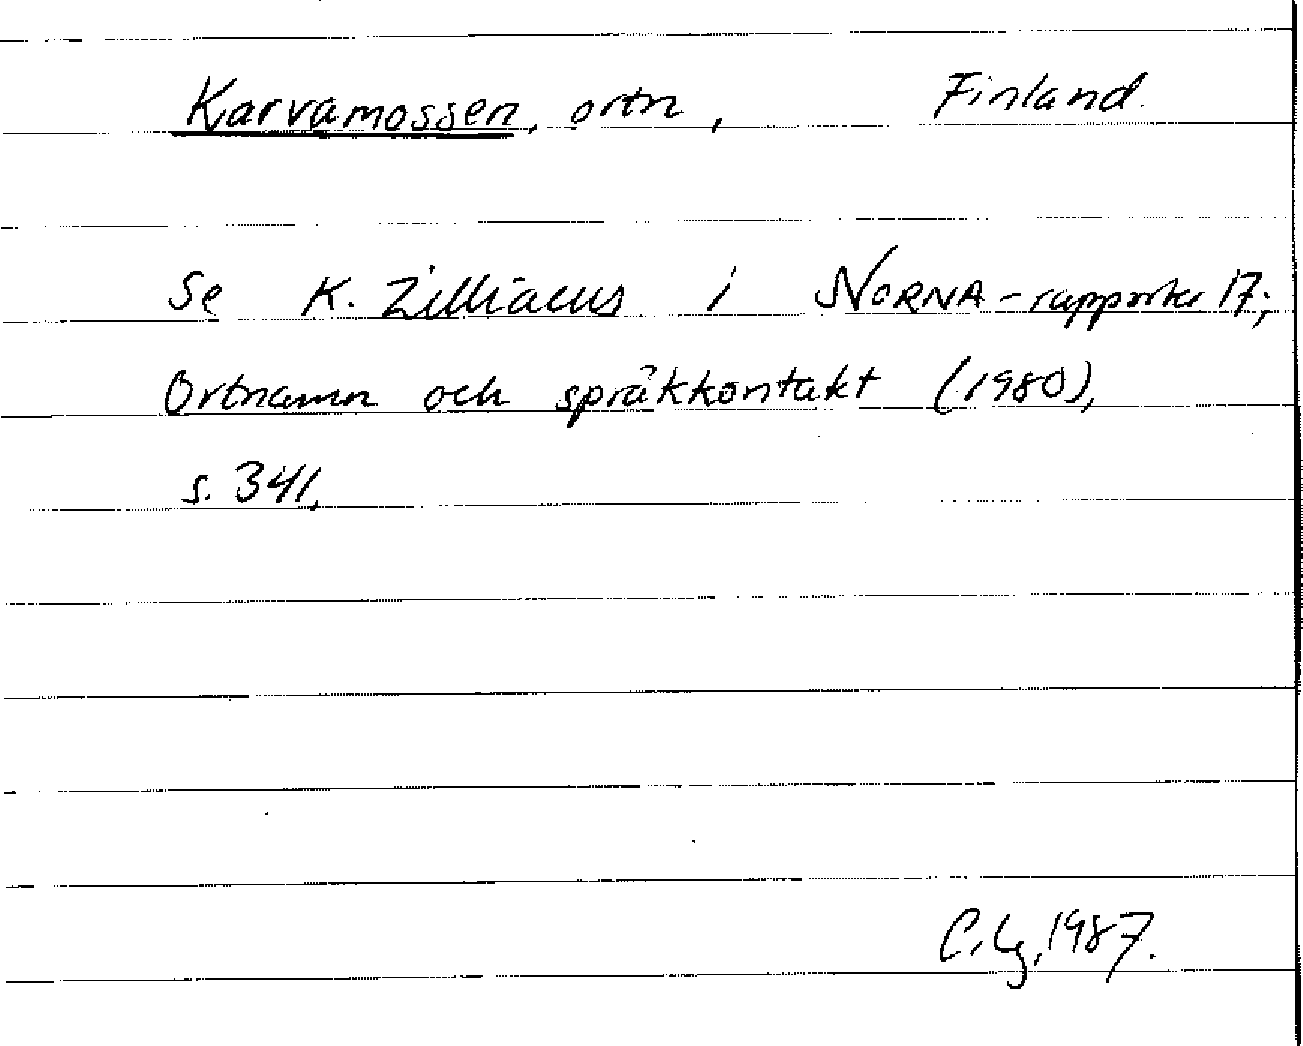 Karvamossen, ortn, Finland.
Se K. Zilliacus i NORNA-rapporter 17;
Ortnamn och språkkontakt (1980),
s. 341.
1987.